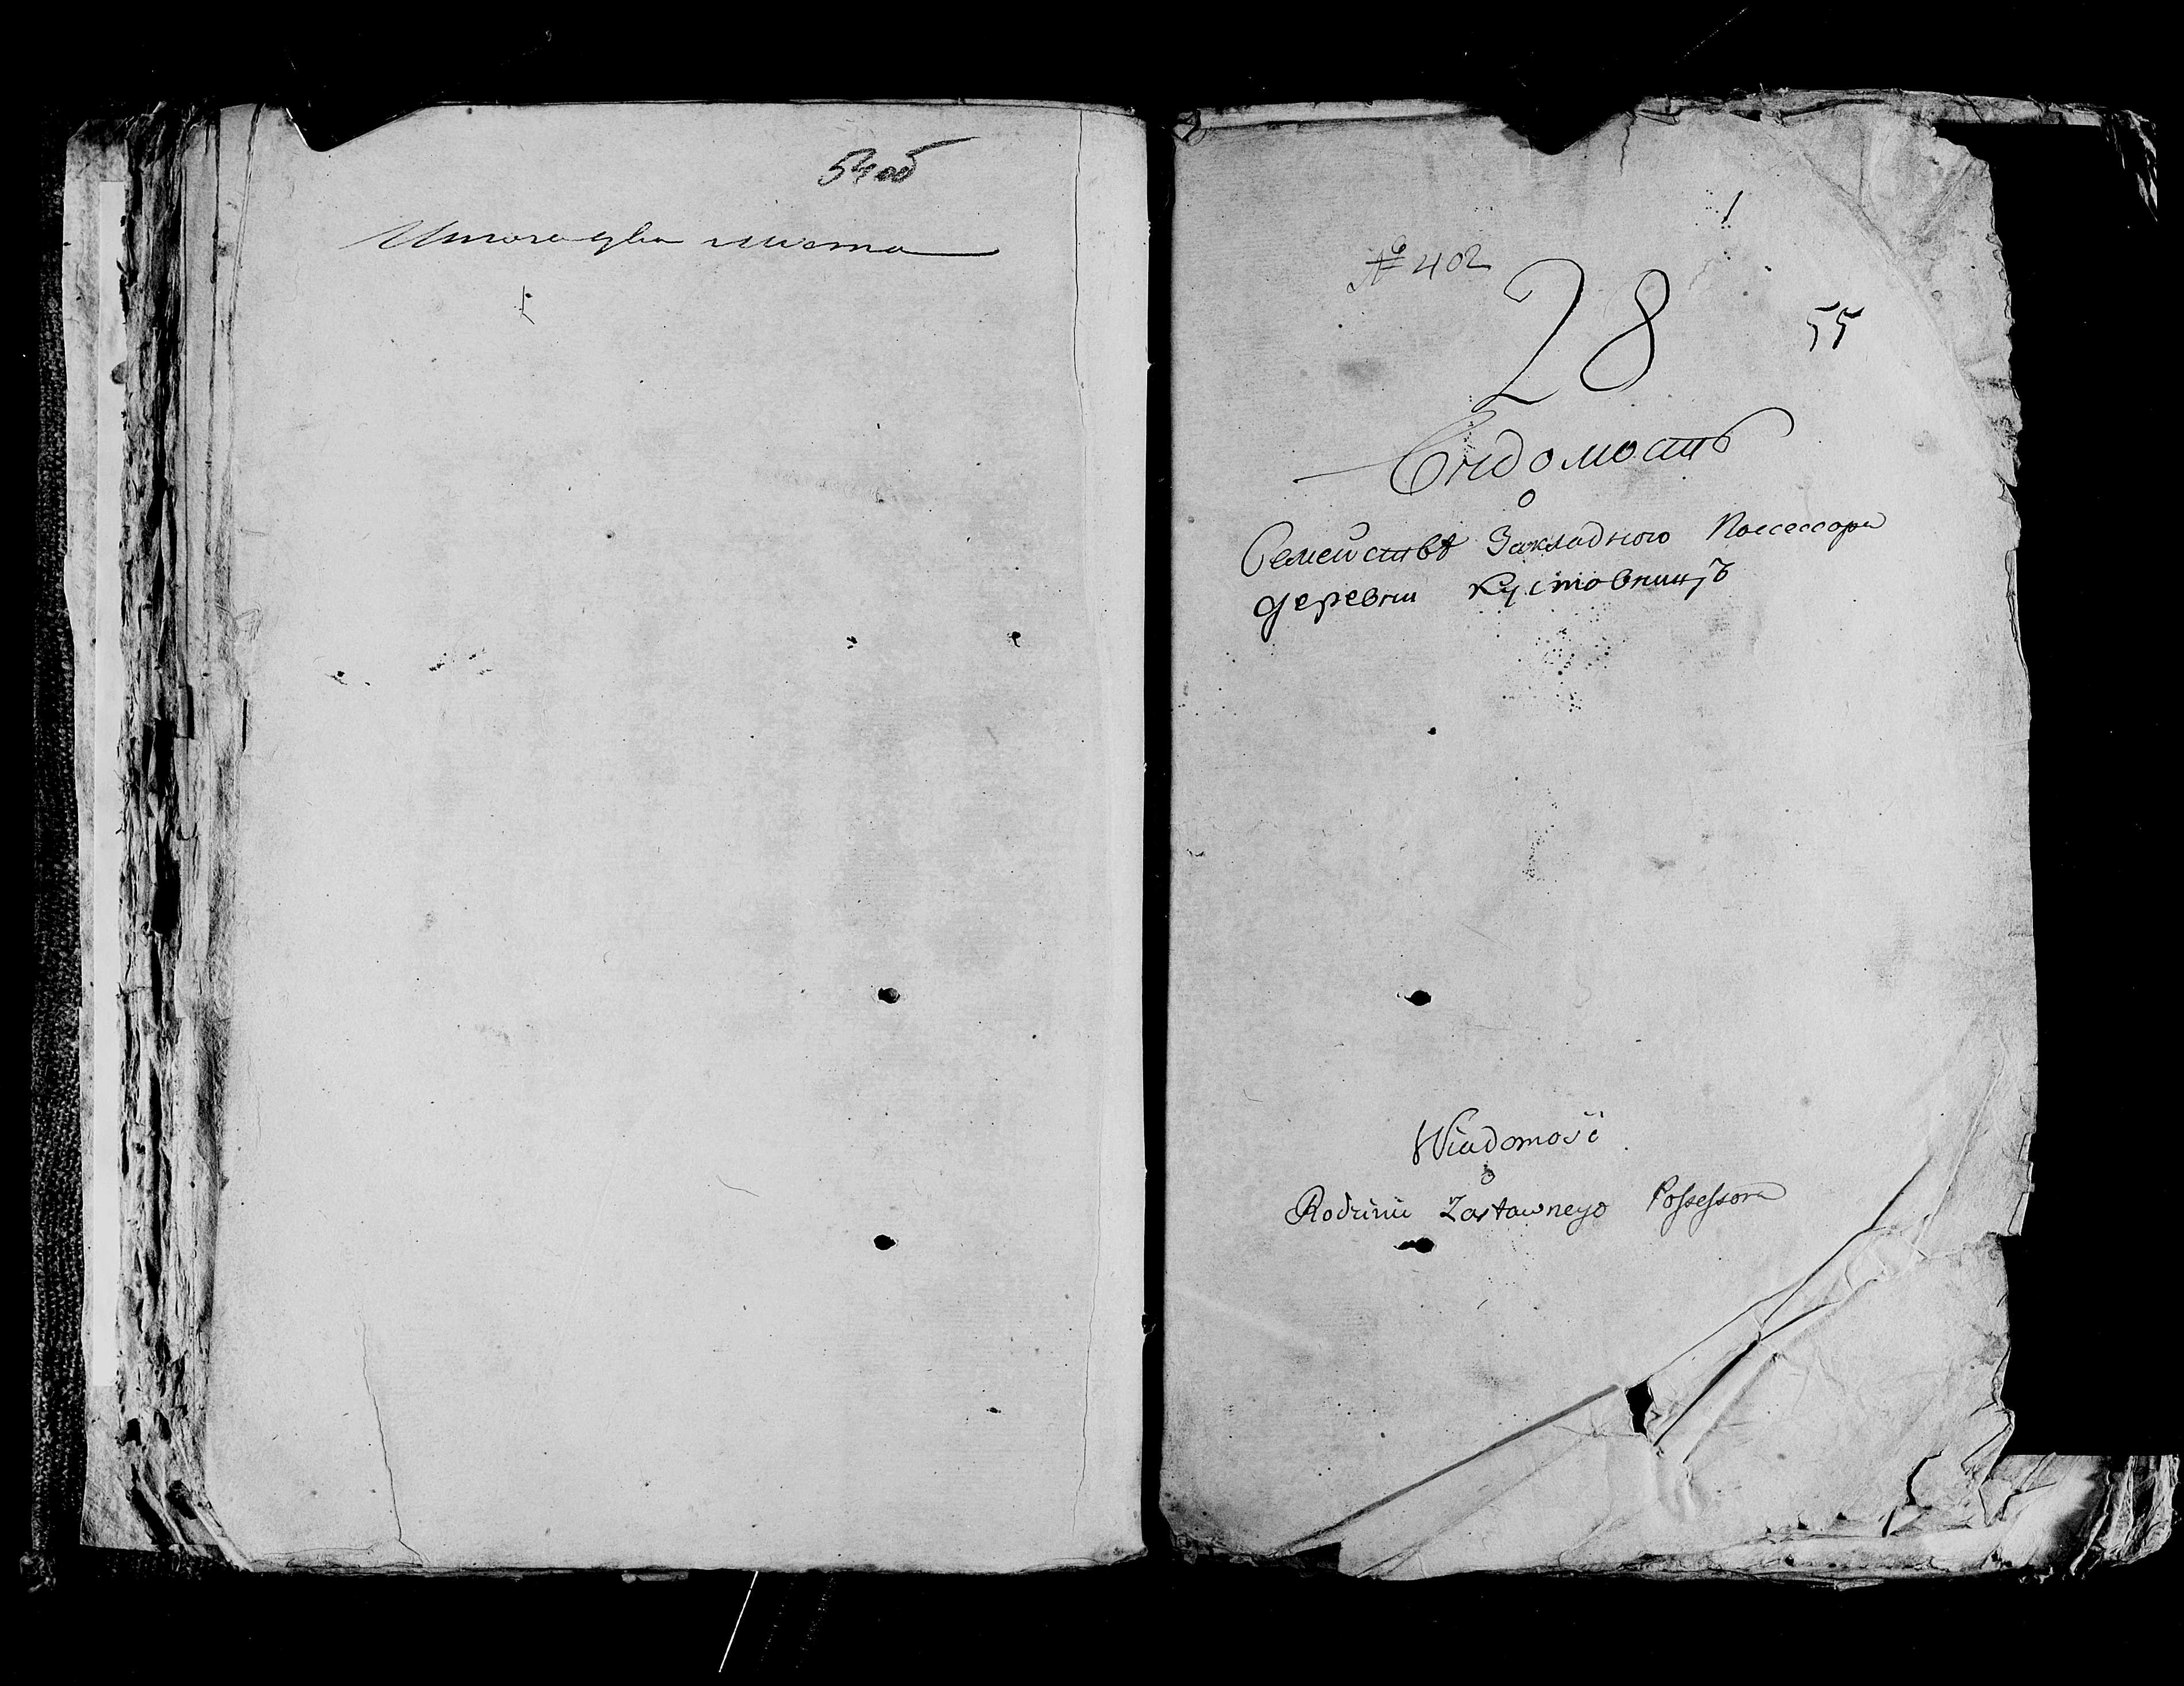 54об
Итого два листа
№ 402
28
55
Вѣдомость
о
Семействѣ Закладного Поссессора
деревни Кустовницъ
Wiadomość
o
Rodzinie Zastawnego Possessora